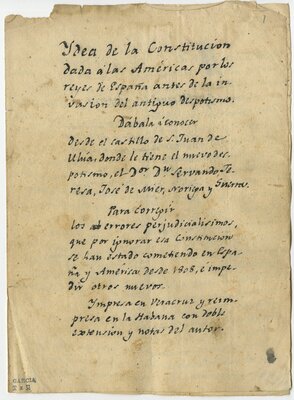 1
Ydea de la Constitucion
dada á las Américas por los
reyes de España antes de la in-
vasion del antiguo despotismo.
Dábala á conocer
Desde el castillo de S. Juan de
Ulua, donde le tiene el nuevo des-
potismo, el Dor. Dn. Servando Te-
resa, José de Mier, Noriega y Guerra.
Para corregir
los errores perjudicialisimos,
que por ignorar esa Constitucion
se han estado cometiendo en Espa-
ña y América desde 1808, é impe-
dir otros nuevos.
Ympresa en Veracruz y reim-
presa en la Habana con doble
extension y notas del autor.
GARCIA